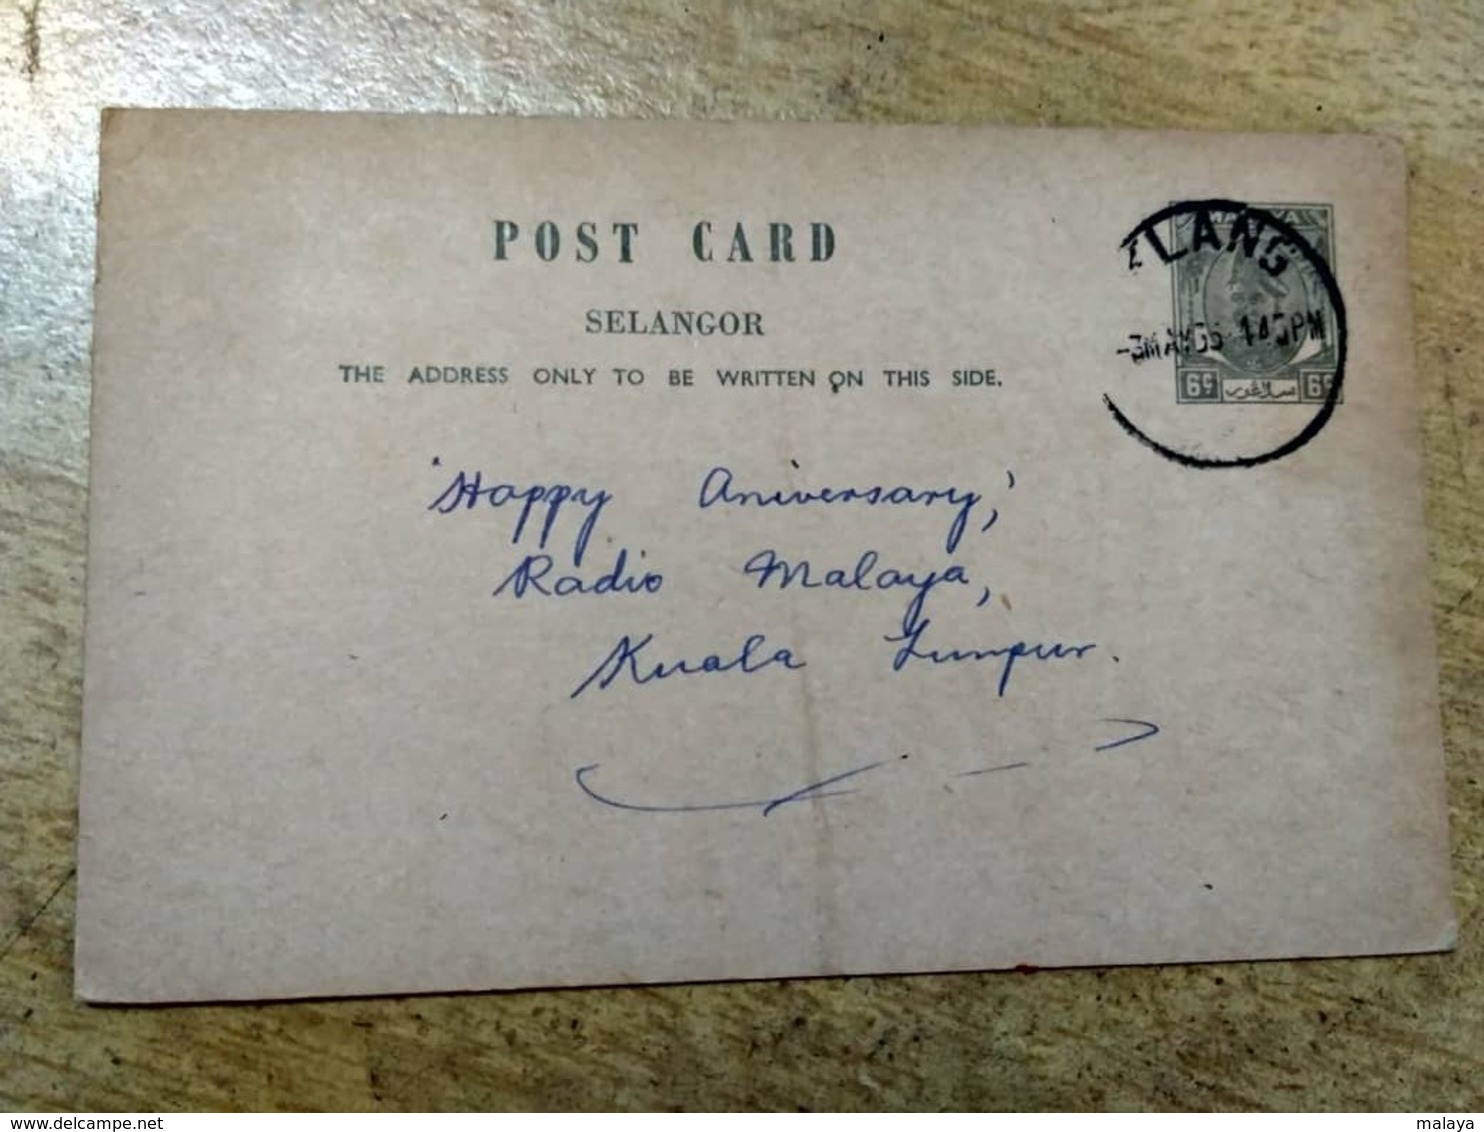 POST CARD
SELANGOR
THE ADDRESS ONLY TO BE WRITTEN ON THIS SIDE.
KLANG
-3MAY56 145PM
6¢ سلاڠور 6¢
'Happy Aniversary,'
Radio Malaya,
Kuala Lumpur.
delcampe.net
malaya